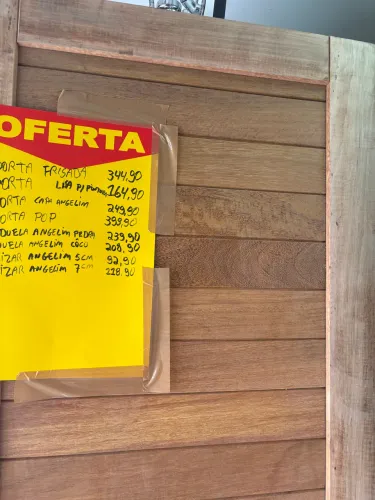 OFERTA
PORTA FRISADA 344,90
PORTA LISA P/ PINTURA 164,90
PORTA CASA ANGELIM 249,90
PORTA POP 399,90
ADUELA ANGELIM PEDRA 239,90
ADUELA ANGELIM CÔCO 208,90
ALIZAR ANGELIM 5CM 92,90
ALIZAR ANGELIM 7CM 118.90